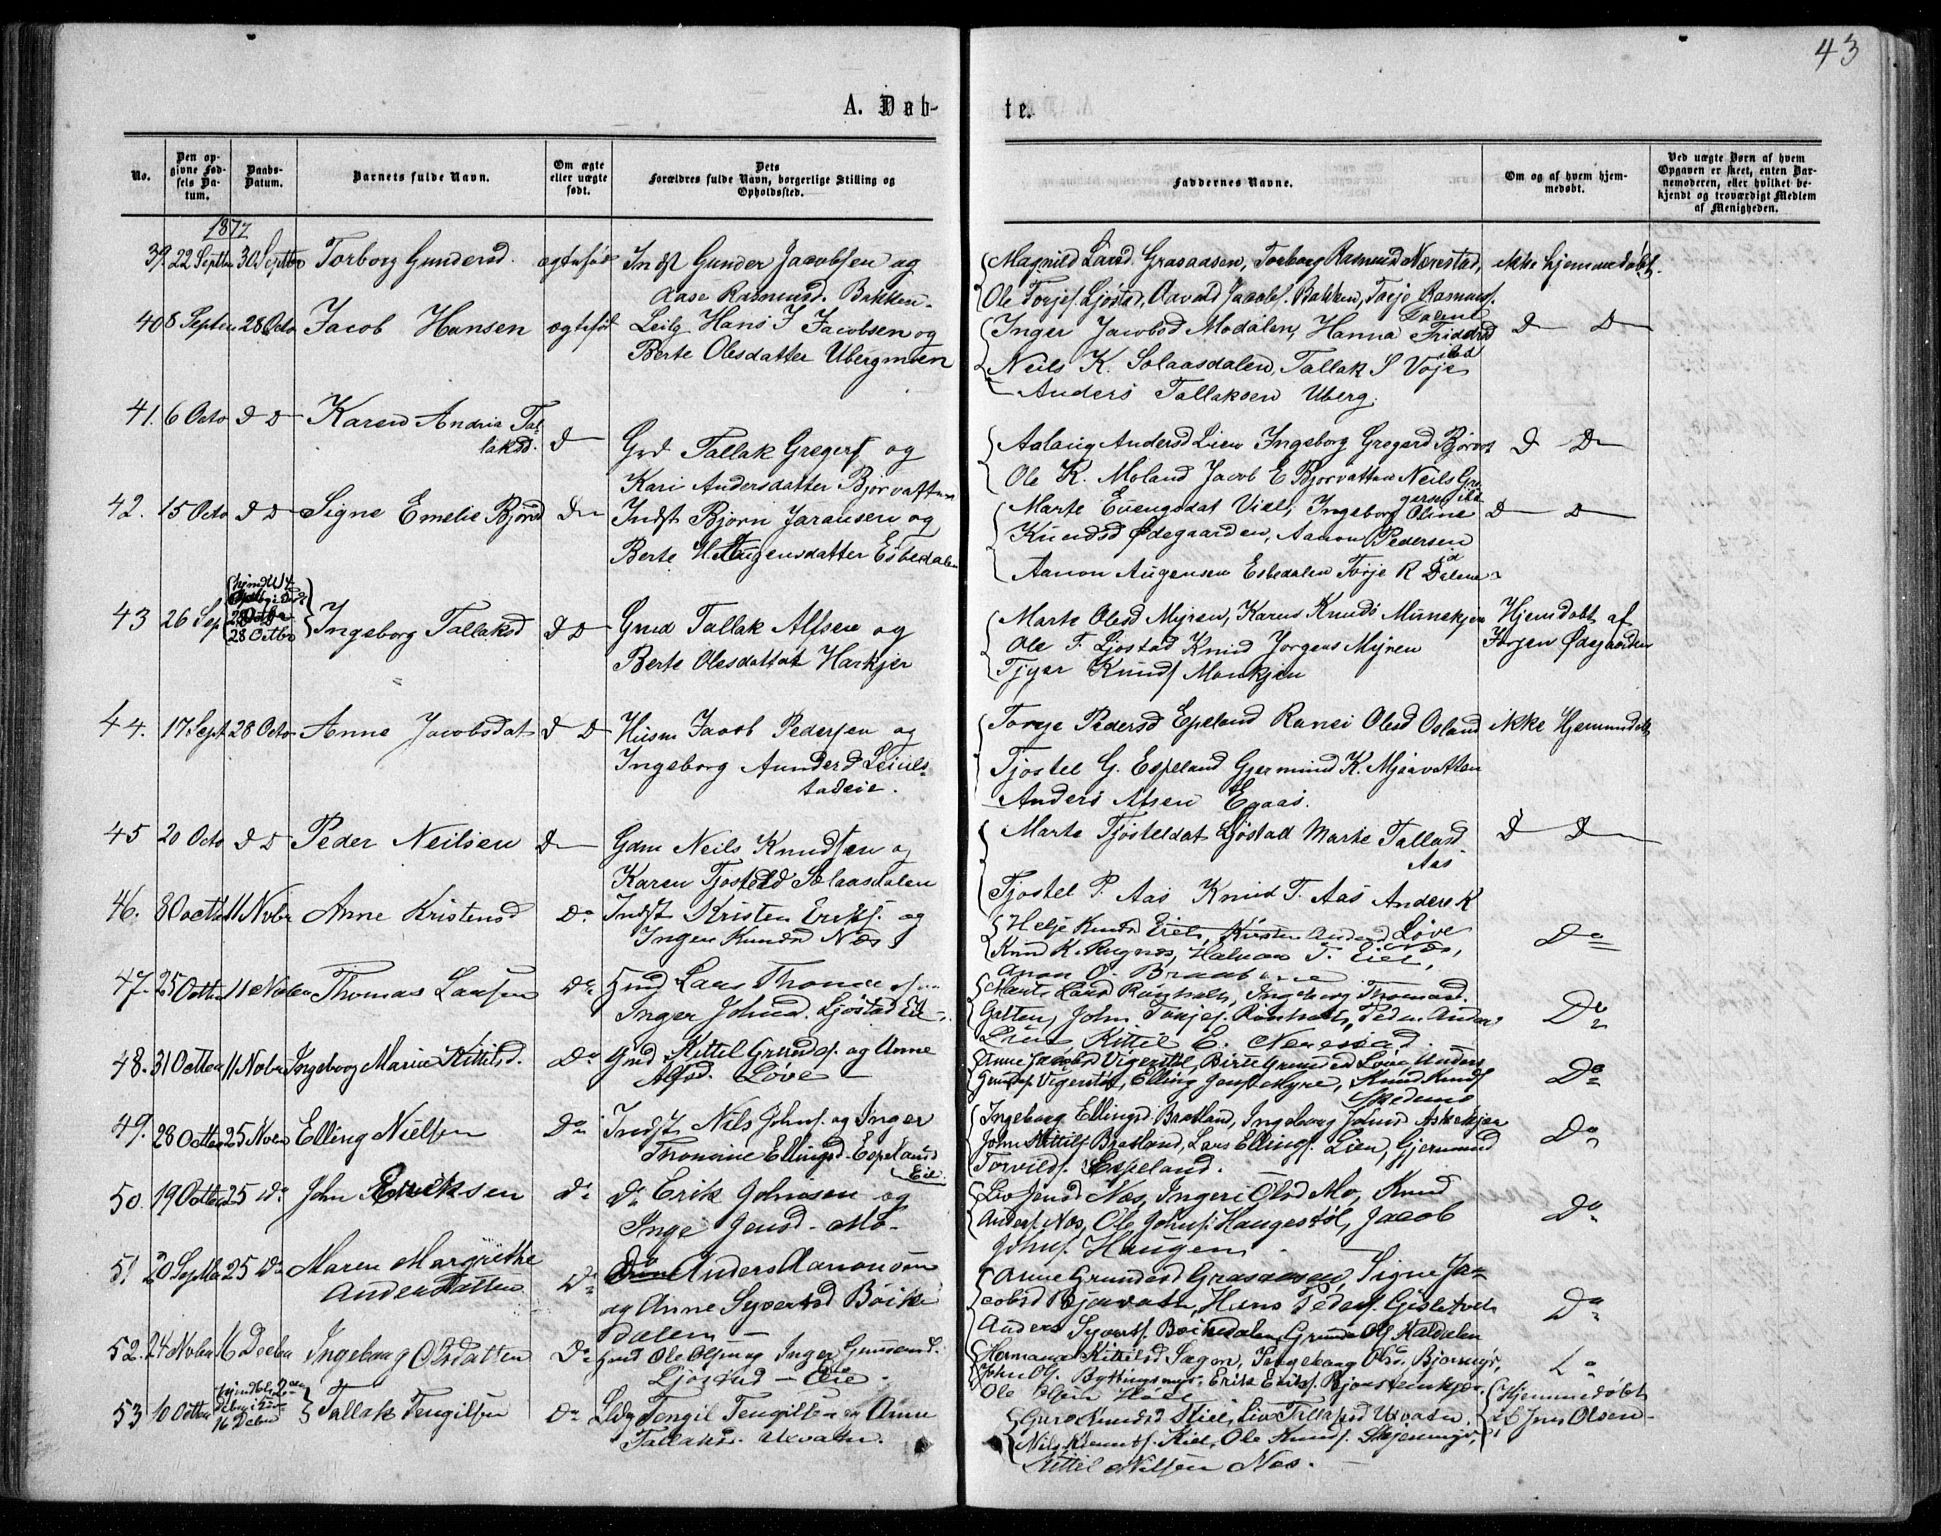 43
A. Døb-
te.
No.
Den op-
givne Fød-
sels Da-
tum.
Daabs-
Datum.
Barnets fulde Navn.
Om ægte
eller uægte
født.
Dets
Forældres fulde Navn, borgerlige Stilling og
Opholdssted.
Faddernes Navne.
Om og af hvem hjem-
medøbt.
Ved uægte Børn af hvem
Opgaven er skeet, enten Bar-
nemoderen, eller hvilket be-
kjendt og troværdigt Medlem
af Menigheden.
1877
39. 22 Septbr 30 Septbr Torborg Gundersd. ægtefød Indst Gunder Jacobsen og
Aase Rasmusd. Bakken.
Magnild Larsd Grasaasen, Torborg Rasmusd Nærestad, ikke hjemmedøbt.
Ole Torjes. Ljostad, Aavald Jacobs. Bakken, Torje Rasmuss.
Dalene
40 8 Septen 28 Octo Jacob Hansen ægtefød Leilg Hans J Jacobsen og
Berte Olesdatter Ubergmoen
Inger Jacobsd Modalen, Hanna D D
Neils K. Solaasdalen, Tallak S Voje
Anders Tallaksen Uberg.
41. 6 Octo D D Karen Andria Tal-
laksd. D
Grd Tallak Gregers og
Kari Andersdatter Bjorvatten
Aslaug Andersd Lien Ingeborg Gregersd Bjorv D D
Ole K. Moland Jacob E Bjorvatten Neils Gre
gersen
42. 15 Octo D D Signe Emelie Bjørnsd D Indst Bjørn Jaransen og
Berte Haugensdatter Esbedalen
Marte Evengsdat Viel, Ingeborg Oline D D
Knudsd Ødegaarden, Aanon Pedersen
Aanon Augensen Esbedalen Torje R Dalene
43 26 Sep 28 Octbr Ingeborg Tallaksd D D Grd Tallak Alfsen og
Berte Olesdattat Harkjer
Marte Olesd Myren, Karen Knuds Munekjen Hjemdøbt af
Ole T. Ljostad Knud Jorgens Myren Jorgen Ødegaarden
Tjger Knuds Monkjen
44. 17 Sept 28 Octo Anne Jacobsdat D D Husm Jacob Pedersen og
Ingeborg Aundersd Leiuls-
tadeie.
Torje Pedersd Epeland Ranei Olesd Osland ikke Hjemmedøbt
Tjostel G. Espeland Gjermund K. Mjaavatten
Anders Alsen Egaas.
45 20 Octo D D Peder Neilsen D Gdm Neils Knudsen og
Karen Tjostelsd Solaasdalen
Marte Tjosteldat Ljostad Marte Tallaksd D D
Aas
Tjostel P. Aas Knud T. Aas Anders K
46. 8 Octbr 11 Novbr Anne Kristensd Do Indst Kristen Eriks. og
Ingen Knudsd Næs
Helje Knudsd Eiel, Kirsten Andersd Løve
Knud K. Rugnæs, Halvor T. Eiel, Næs, Do
47. 25 Octbr 11 Novbr Thomas Larsen Do Grd Lars Thomes.
Inger Johnsd. Ljøstad Eie
Marte Larsd Rønholt, Ingeborg Thomasd.
Galten, John Torjes. Rønholt, Peder Anders Do
Lien, Kittil E. Nerestad.
48. 31 Octbr 11 Novbr Ingeborg Marie Kittilsd. Do Grd Kittil Grunds. og Anne
Alfsd. Løve
Anne Jacobsd Vigerstøl, Birte Grunded Løve, Anders
Grunds. Vigerstøl, Elling Jons. Myre, Knud Knuds Do
49. 28 Octbr 25 Novbr Elling Nielsen Do Indst Nils Johns. og Inger
Thomine Ellingsd. Espelands
Eie.
Ingeborg Ellingsd. Bratland, Ingeborg Johnsd Askekjær
John Kittils. Bratland, Lars Ellings. Lien, Gjermund Do
Torvilds. Espeland.
50. 19 Octbr 25 Do John Eriksen Do Do Erik Johnsen og
Inge Jensd. Mo
Liv Jensd Næs, Ingeri Olsd Mo, Knud
Anders. Næs, Ole Johns. Haugestøl, Jacob Do
Johns. Haugen
51 20 Septbr 25 Do Maren Margrethe
Andersdatten Do Do Anders Aanonsen
og Anne Syvertsd Böike
dalen
Anne Grundesd Grasaasen, Signe Ja-
cobsd Bjorvatn, Hans Peders. Gislelvet Do
Anders Syverts. Böikedalen, Grunde Ols. Maldalen
52. 24 Novbr 16 Decbr Ingeborg Olsdatten Do Grd Ole Olsen og Inger Gunuls.
Ljøstad Eie
Hermana Kittilsd Sagen, Ingeborg Olsd. Bjornnæs, Do
John Ols. Byttingsnæs, Erik Eriks. Bjorsteinkjær.
Ole Olsen
53 10 Octbr 16 Decbr Tallak Tengilsen Do Ldg Tengil Tengilsen og Anne
Tallaksd. Uxvatn.
Guro Knudsd Kiel, Liv Tallaksd Uxvatn. Hjemmedøbt
af Jens Olsen
Nils Knuds. Kiel, Ole Knuds.
Kittil Nilsen Næs.